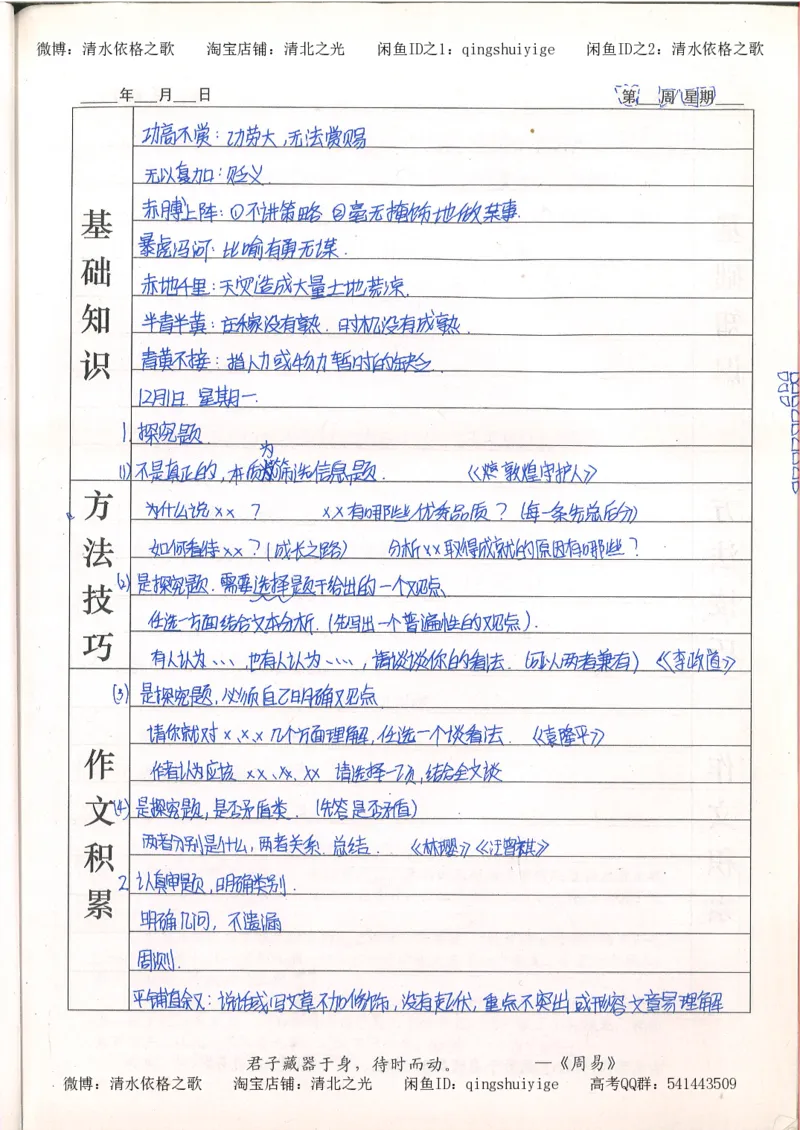 微博：清水依格之歌 淘宝店铺：清北之光 闲鱼ID之1：qingshuiyige 闲鱼ID之2：清水依格之歌
____年___月___日 第___周 星期____
基础知识
功高不赏：功劳大，无法赏赐
无以复加：贬义
赤膊上阵：①不讲策略 ②毫无掩饰地做某事.
暴虎冯河：比喻有勇无谋.
赤地千里：天灾造成大量土地荒凉.
半青半黄：庄稼没有熟．时机没有成熟.
青黄不接：指人力或物力暂时的缺乏
12月1日．星期一.
1. 探究题
(1)不是真正的，本质为筛选信息题. 《敦煌守护人》
方法技巧
为什么说xx？ xx有哪些优秀品质？(每一条先总后分)
如何看待xx？(成长之路) 分析xx取得成就的原因有哪些？
(2)是探究题．需要选择题干给出的一个观点
任选一方面结合文本分析．(先写出一个普遍性的观点).
有人认为、、、也有人认为、、、、，请谈谈你的看法．(可以两者兼有)《李政道》
作文积累
(3)是探究题，必须自己明确观点
请你就对x、x、x几个方面理解，任选一个谈看法．《袁隆平》
作者认为应该xx、xx、xx 请选择一项，结合全文谈
(4)是探究题，是否矛盾类．(先答是否矛盾)
两者分别是什么，两者关系．总结． 《林璎》《汪曾祺》
2. 认真审题，明确类别.
明确几问，不遗漏
周测.
平铺直叙：说话或写文章不加修饰，没有起伏，重点不突出 或形容文章易理解
君子藏器于身，待时而动。 —《周易》
微博：清水依格之歌 淘宝店铺：清北之光 闲鱼ID：qingshuiyige 高考QQ群：541443509